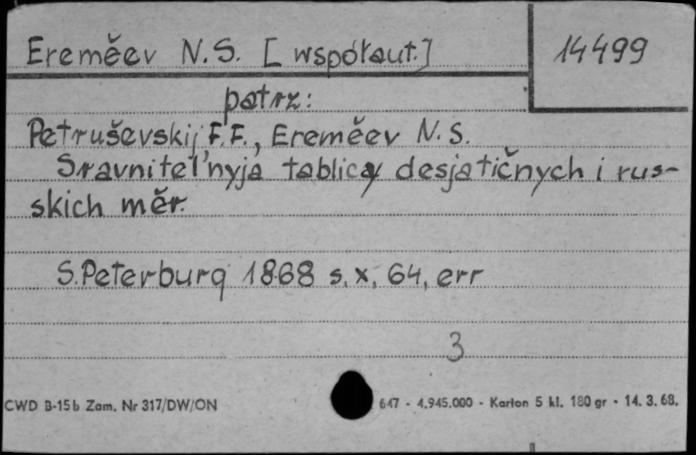 Ereměev N.S. [współaut.]
14499
patrz:
Petruševskij F.F., Ereměev N.S.
Sravnitel'nyja tablicy desjatičnych i rus-
skich měr.
S.Peterburg 1868 s. x, 64, err
3
CWD B-15b Zam. Nr 317/DW/ON
647 - 4.945.000 - Karton 5 kl. 180 gr - 14. 3. 68.